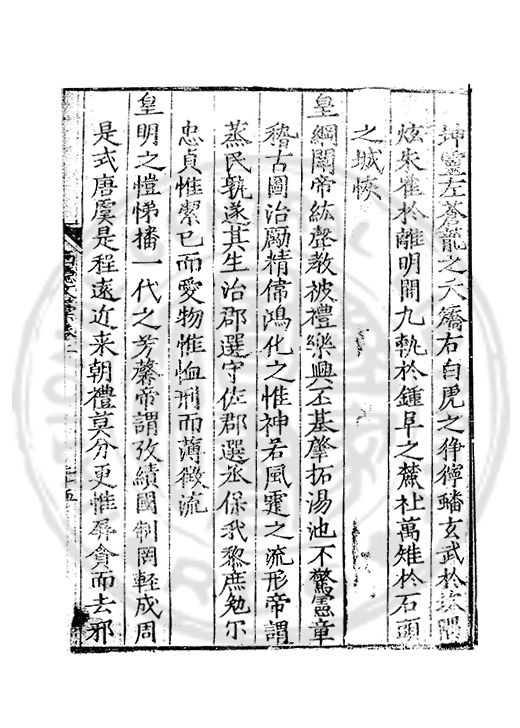 坤靈左蒼龍之夭矯右白虎之猙獰蟠玄武於坎隅
炫朱雀於離明開九軌於鍾阜之麓杜萬雉於石頭
之城陔
皇綱闡帝紘聲教被禮樂興丕基肇拓湯池不驚憲章
稽古圖治勵精儒鴻化之惟神若風霆之流形帝謂
蒸民孰遂其生治郡選守佐郡選丞保我黎庶勉尔
忠貞惟潔已而愛物惟恤刑而薄徵流
皇明之愷悌播一代之芳馨帝謂攷績國制罔輕成周
是式唐虞是程遠近来朝禮莫分更惟辱貪而去邪